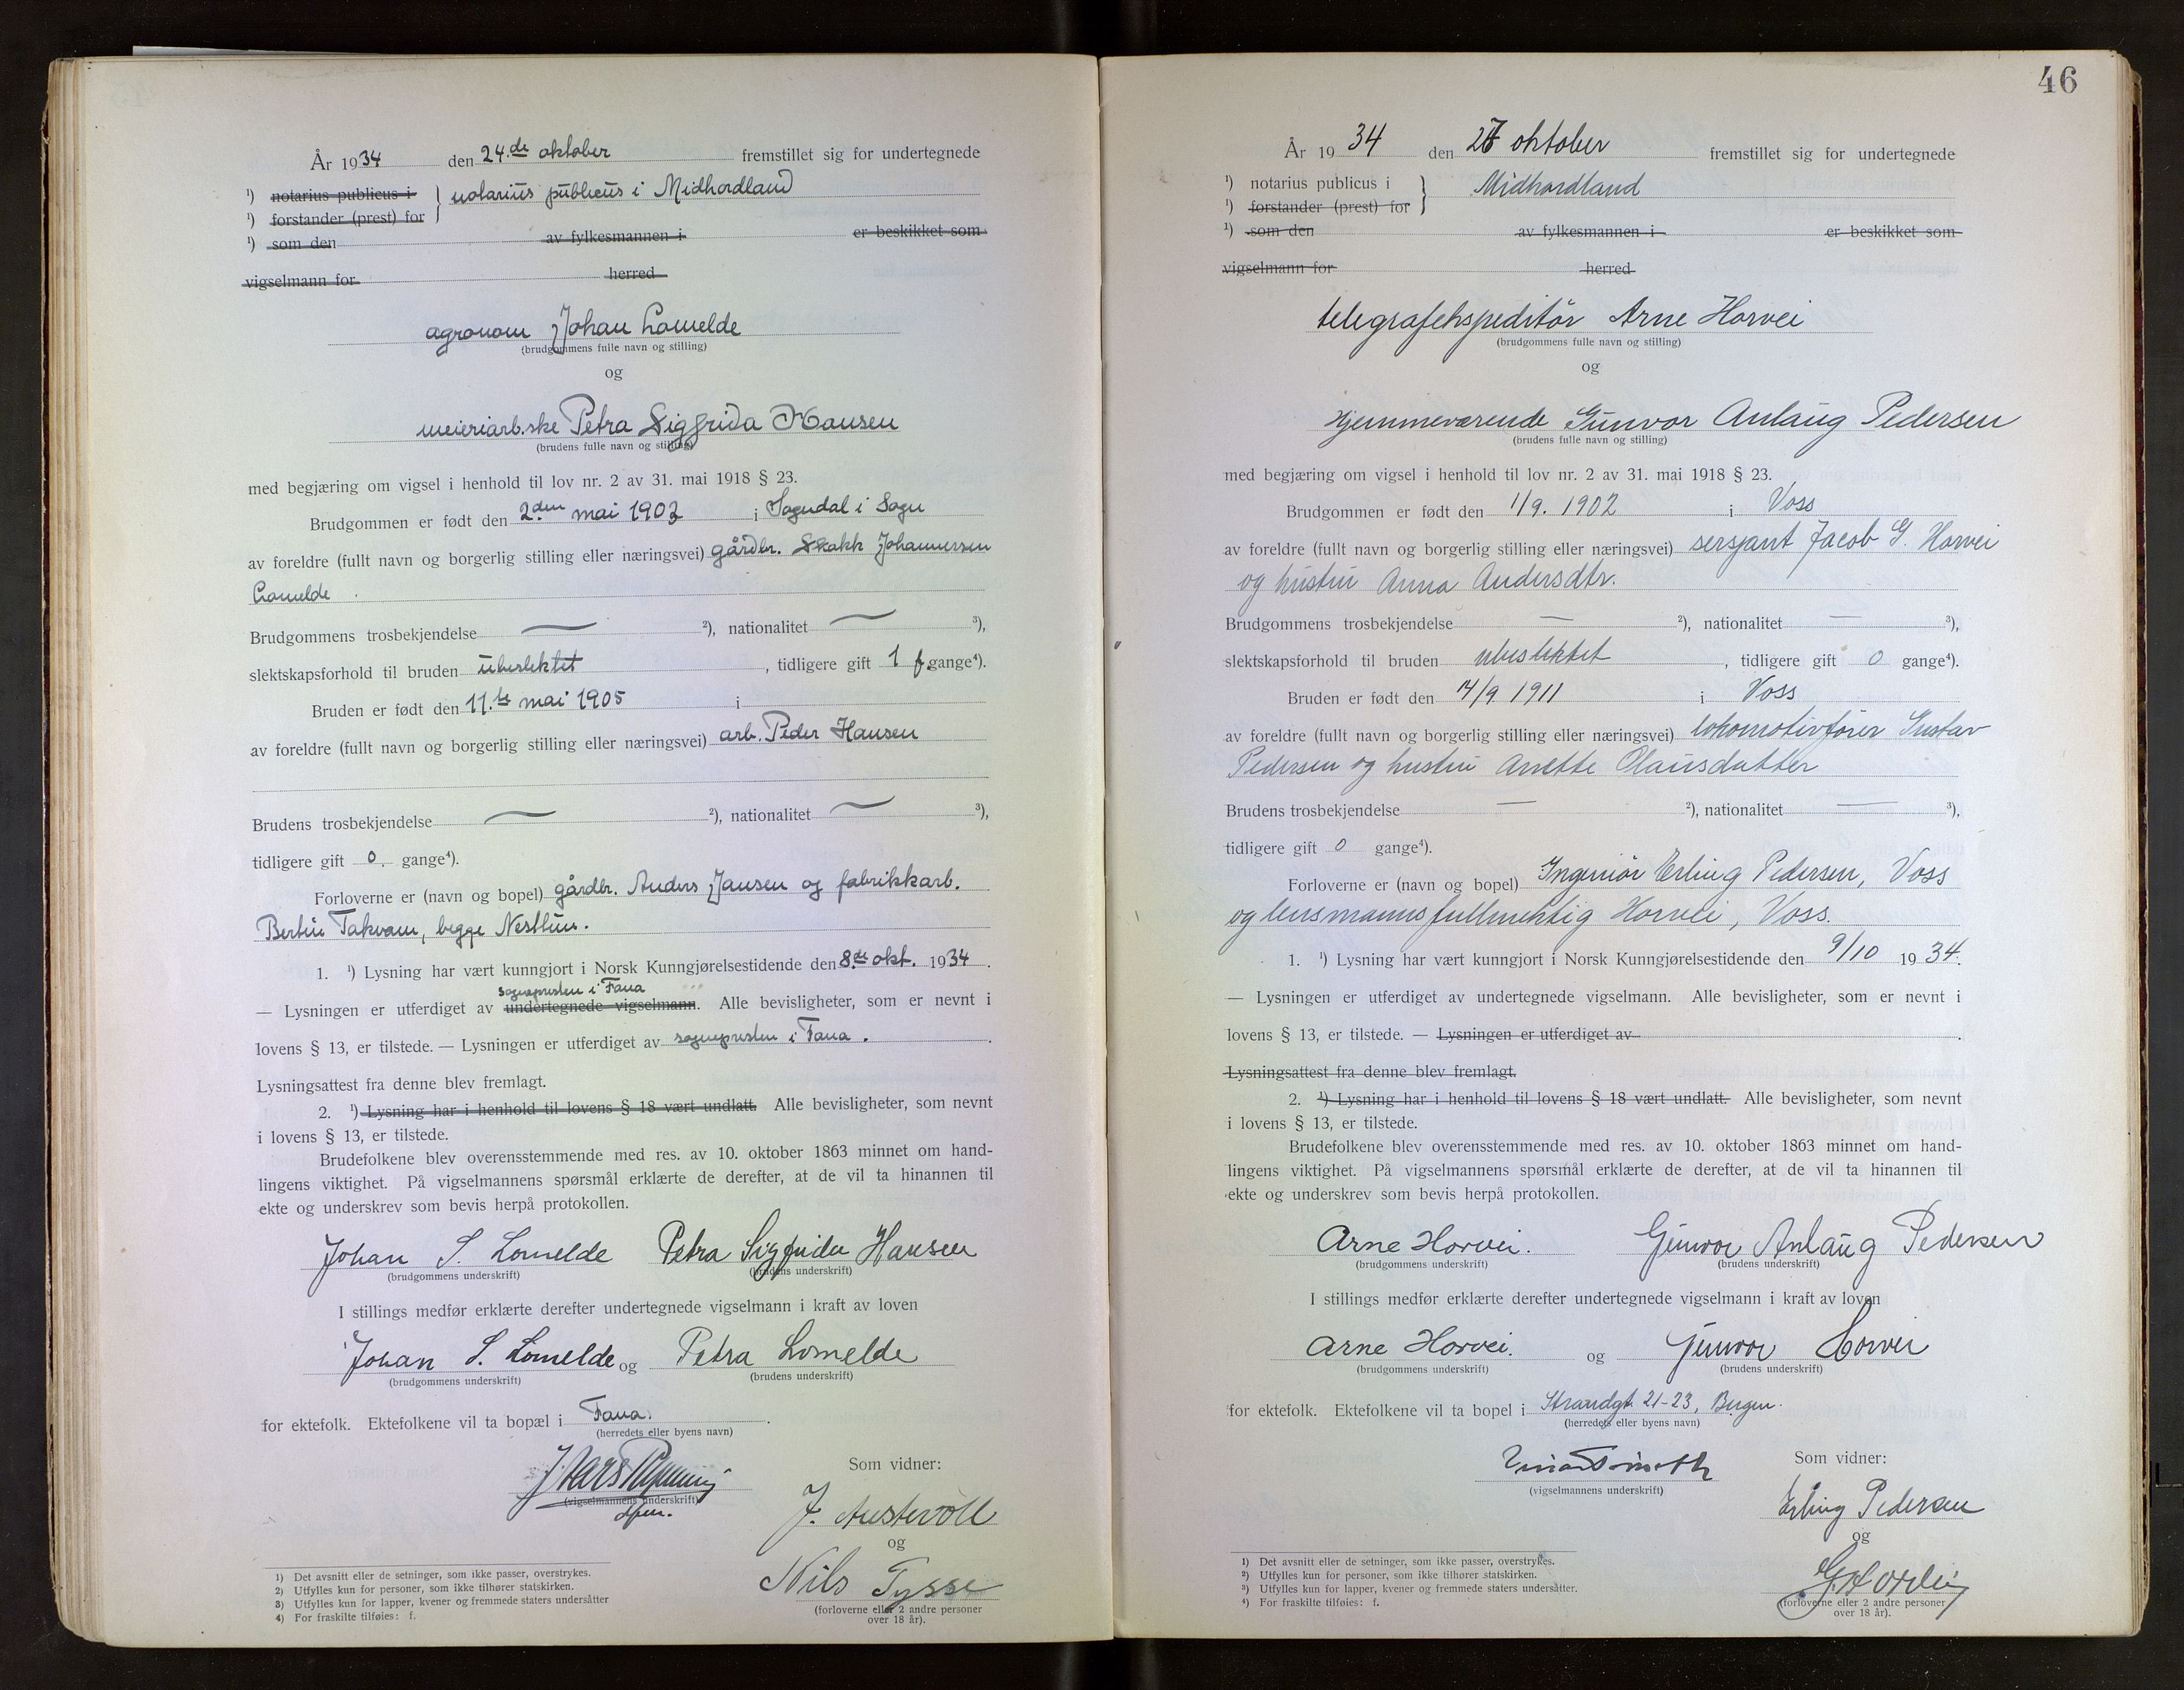 År 1934 den 24.de oktober fremstillet sig for undertegnede
¹) notarius publicus i } notarius publicus i Midhordland
¹) forstander (prest) for
¹) som den av fylkesmannen i er beskikket som
vigselmann for herred
agronom Johan Lomelde
(brudgommens fulle navn og stilling)
og
meieriarb.ske Petra Sigfrida Hansen
(brudens fulle navn og stilling)
med begjæring om vigsel i henhold til lov nr. 2 av 31. mai 1918 § 23.
Brudgommen er født den 2den mai 1903 i Sogndal i Sogn
av foreldre (fullt navn og borgerlig stilling eller næringsvei) gårdbr. Skakk Johannersen
Lomelde.
Brudgommens trosbekjendelse — ²), nationalitet — ³),
slektskapsforhold til bruden ubeslektet, tidligere gift 1 f. gange⁴).
Bruden er født den 11.te mai 1905 i
av foreldre (fullt navn og borgerlig stilling eller næringsvei) arb. Peder Hansen
Brudens trosbekjendelse — ²), nationalitet — ³),
tidligere gift 0. gange⁴).
Forloverne er (navn og bopel) gårdbr. Anders Jansen og fabrikkarb.
Bertin Takvam, begge Nesttun.
1. ¹) Lysning har vært kunngjort i Norsk Kunngjørelsestidende den 8.de okt. 1934.
sognepresten i Fana
— Lysningen er utferdiget av undertegnede vigselmann. Alle bevisligheter, som er nevnt i
lovens § 13, er tilstede. — Lysningen er utferdiget av sognepresten i Fana.
Lysningsattest fra denne blev fremlagt.
2. ¹) Lysning har i henhold til lovens § 18 vært undlatt. Alle bevisligheter, som nevnt
i lovens § 13, er tilstede.
Brudefolkene blev overensstemmende med res. av 10. oktober 1863 minnet om hand-
lingens viktighet. På vigselmannens spørsmål erklærte de derefter, at de vil ta hinannen til
ekte og underskrev som bevis herpå protokollen.
Johan S. Lomelde Petra Sigfrida Hansen
(brudgommens underskrift) (brudens underskrift)
I stillings medfør erklærte derefter undertegnede vigselmann i kraft av loven
Johan S. Lomelde og Petra Lomelde
(brudgommens underskrift) (brudens underskrift)
for ektefolk. Ektefolkene vil ta bopæl i Fana.
(herredets eller byens navn)
Som vidner:
(vigselmannens underskrift)
dfm.
J. Austevoll
og
Nils Tysse
(forloverne eller 2 andre personer
over 18 år).
1) Det avsnitt eller de setninger, som ikke passer, overstrykes.
2) Utfylles kun for personer, som ikke tilhører statskirken.
3) Utfylles kun for lapper, kvener og fremmede staters undersåtter
4) For fraskilte tilføies: f.
46
År 1934 den 27 oktober fremstillet sig for undertegnede
¹) notarius publicus i } Midhordland
¹) forstander (prest) for
¹) som den av fylkesmannen i er beskikket som
vigselmann for herred
telegrafekspeditør Arne Horvei
(brudgommens fulle navn og stilling)
og
Hjemmeværende Gunvor Anlaug Pedersen
(brudens fulle navn og stilling)
med begjæring om vigsel i henhold til lov nr. 2 av 31. mai 1918 § 23.
Brudgommen er født den 1/9. 1902 i Voss
av foreldre (fullt navn og borgerlig stilling eller næringsvei) sersjant Jacob G. Horvei
og hustru Anna Andersdtr.
Brudgommens trosbekjendelse — ²), nationalitet — ³),
slektskapsforhold til bruden ubeslektet, tidligere gift 0 gange⁴).
Bruden er født den 14/9 1911 i Voss
av foreldre (fullt navn og borgerlig stilling eller næringsvei) lokomotivfører Gustav
Pedersen og hustru Anette Olausdatter
Brudens trosbekjendelse — ²), nationalitet — ³),
tidligere gift 0 gange⁴).
Forloverne er (navn og bopel) Ingeniør Erling Pedersen, Voss
og lensmannsfullmektig Horvei, Voss.
1. ¹) Lysning har vært kunngjort i Norsk Kunngjørelsestidende den 9/10 1934.
— Lysningen er utferdiget av undertegnede vigselmann. Alle bevisligheter, som er nevnt i
lovens § 13, er tilstede. — Lysningen er utferdiget av.
Lysningsattest fra denne blev fremlagt.
2. ¹) Lysning har i henhold til lovens § 18 vært undlatt. Alle bevisligheter, som nevnt
i lovens § 13, er tilstede.
Brudefolkene blev overensstemmende med res. av 10. oktober 1863 minnet om hand-
lingens viktighet. På vigselmannens spørsmål erklærte de derefter, at de vil ta hinannen til
ekte og underskrev som bevis herpå protokollen.
Arne Horvei. Gunvor Anlaug Pedersen
(brudgommens underskrift) (brudens underskrift)
I stillings medfør erklærte derefter undertegnede vigselmann i kraft av loven
Arne Horvei. og Gunvor Horvei
(brudgommens underskrift) (brudens underskrift)
for ektefolk. Ektefolkene vil ta bopel i Strandgt. 21-23, Bergen.
(herredets eller byens navn)
Som vidner:
(vigselmannens underskrift)
Erling Pedersen
og
G. Horvei
(forloverne eller 2 andre personer
over 18 år).
¹) Det avsnitt eller de setninger, som ikke passer, overstrykes.
²) Utfylles kun for personer, som ikke tilhører statskirken.
³) Utfylles kun for lapper, kvener og fremmede staters undersåtter.
⁴) For fraskilte tilføies: f.